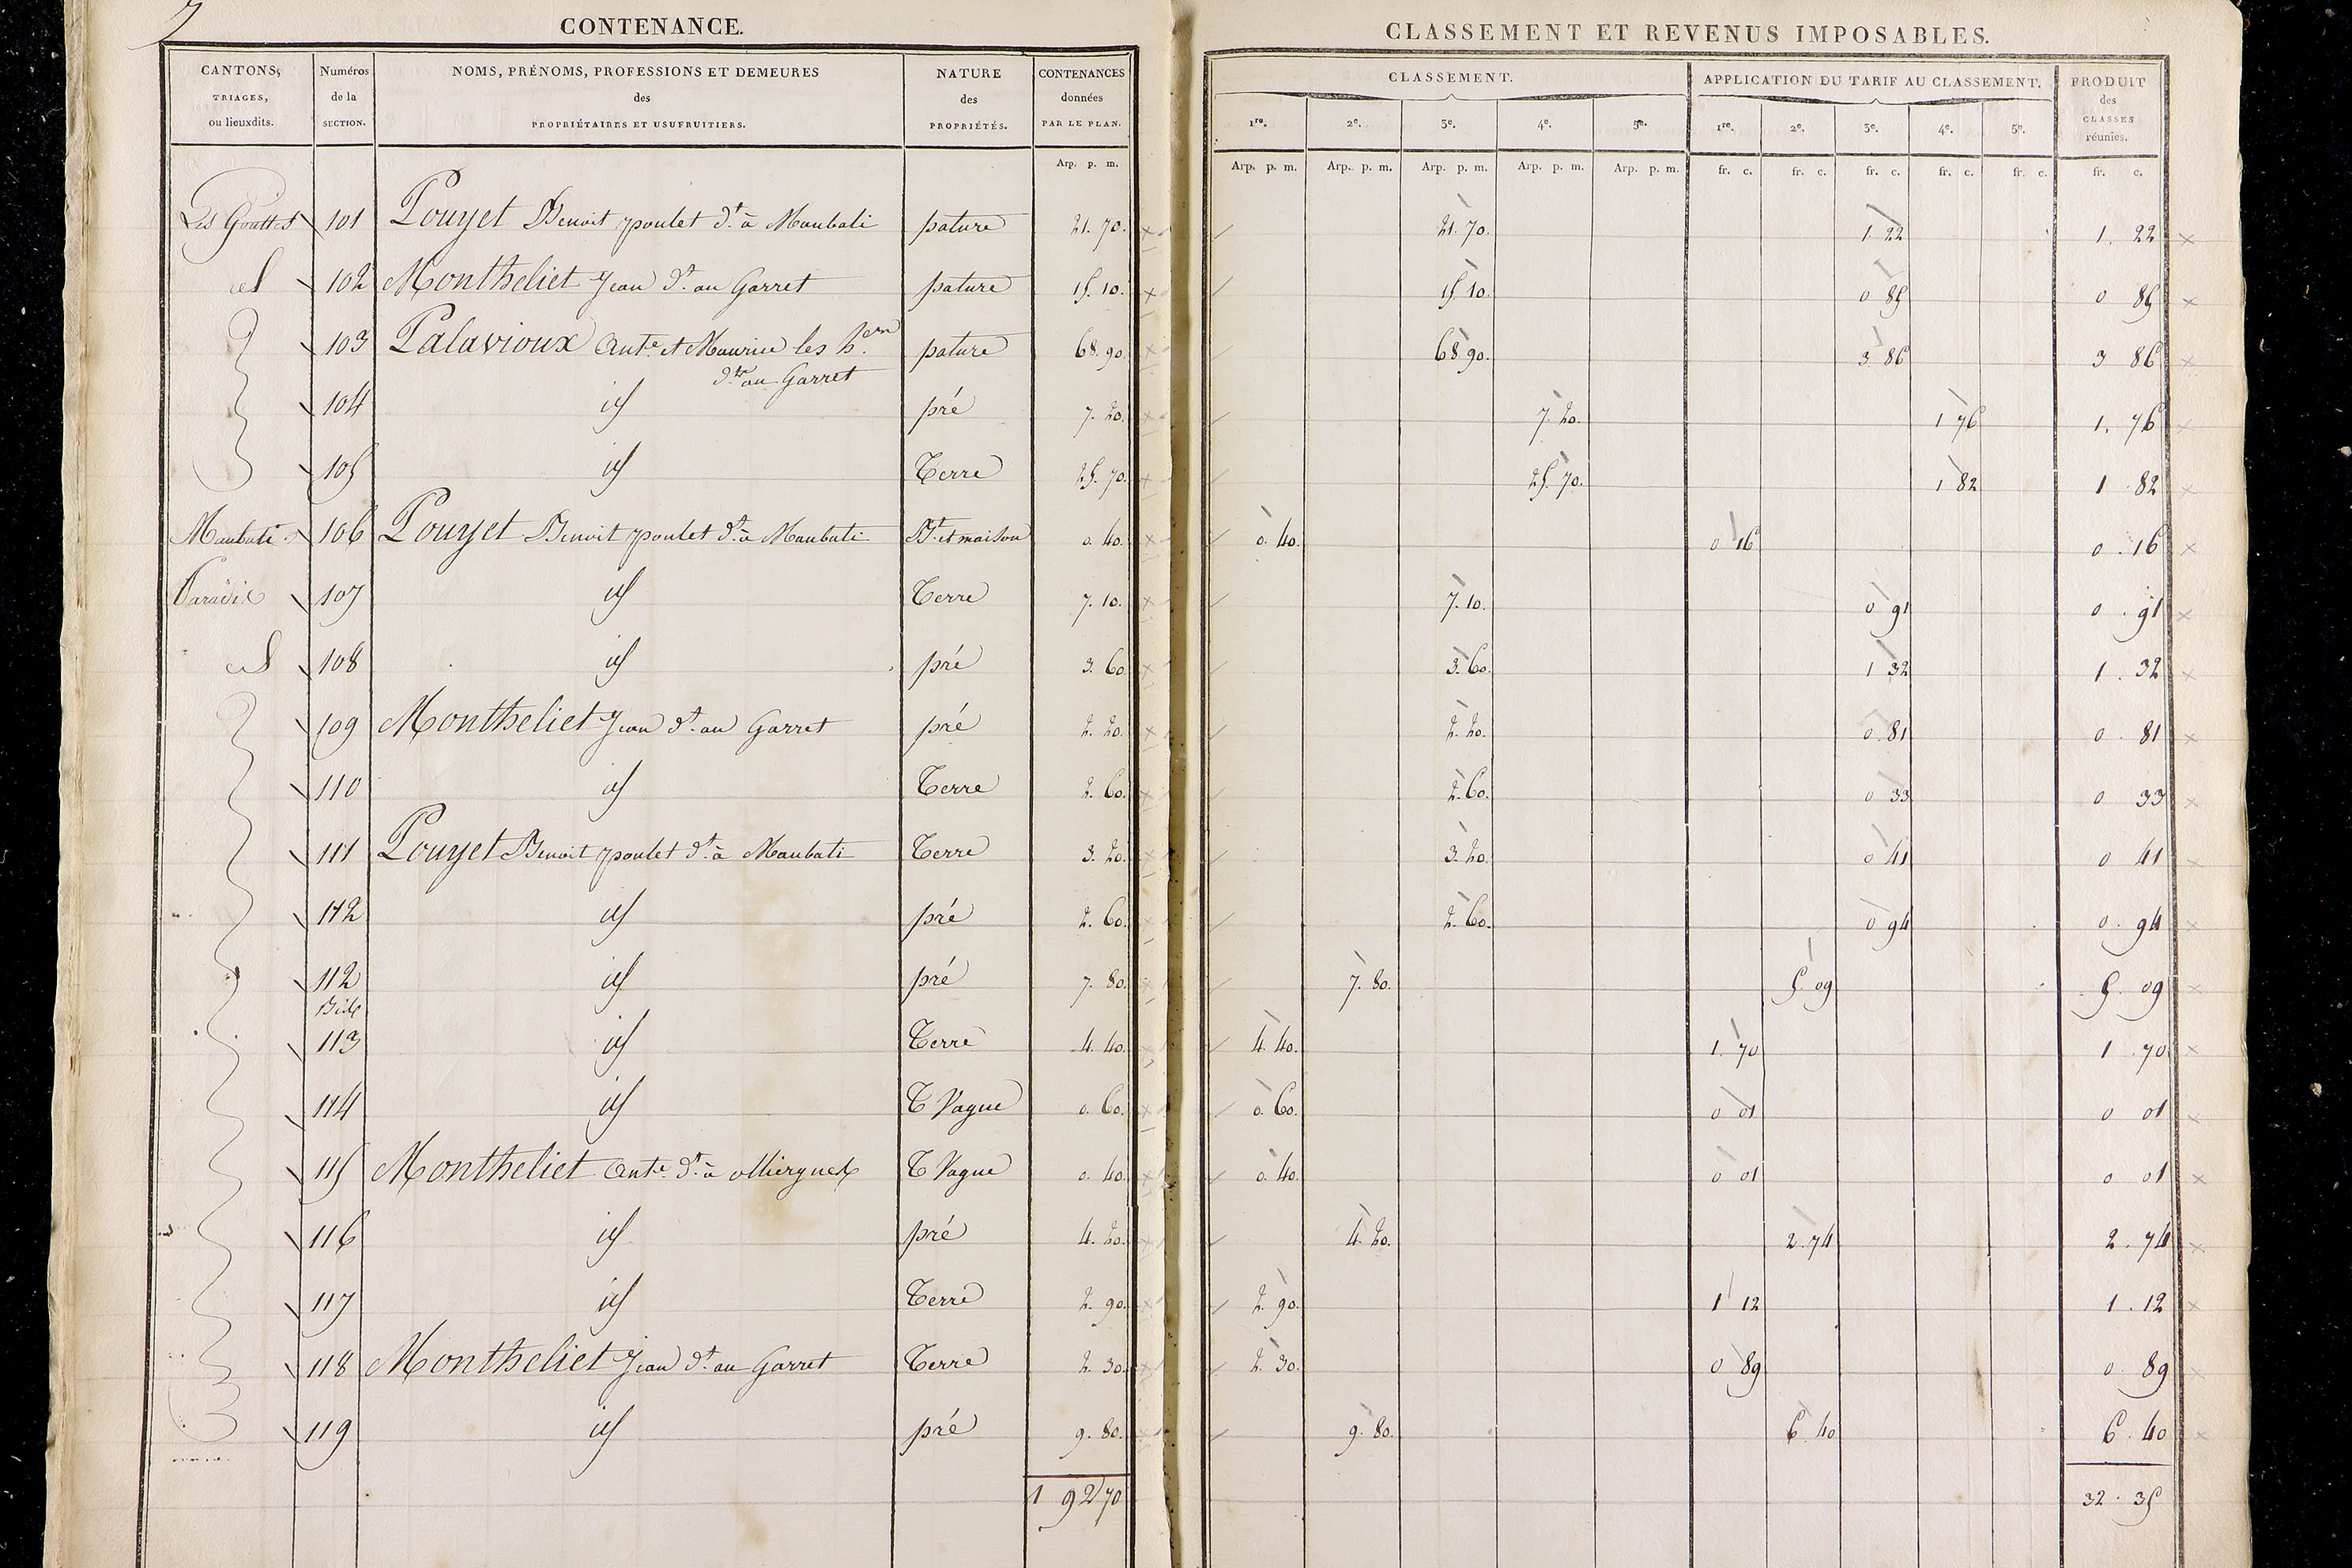 7
CONTENANCE.
CANTONS, TRIAGES, ou lieuxdits. Numéros de la SECTION. NOMS, PRÉNOMS, PROFESSIONS ET DEMEURES des PROPRIÉTAIRES ET USUFRUITIERS. NATURE des PROPRIÉTÉS. CONTENANCES données PAR LE PLAN.
Arp. p. m.
CLASSEMENT ET REVENUS IMPOSABLES.
CLASSEMENT. APPLICATION DU TARIF AU CLASSEMENT. PRODUIT des CLASSES réunies.
1re. 2e. 3e. 4e. 5e. 1re. 2e. 3e. 4e. 5e.
Arp. p. m. Arp. p. m. Arp. p. m. Arp. p. m. Arp. p. m. fr. c. fr. c. fr. c. fr. c. fr. c. fr. c.
Les Gouttes 101 Pouyet Benoit poulet dt. à Maubati pature 21. 70. 21. 70. 1 22 1. 22
id 102 Montheliet Jean dt. au Garret pature 15. 10. 15 10. 0 85 0 85
103 Palavioux Ante. et Maurice les hers. pature 68. 90. 68 90. 3 86 3 86
dts au Garret
104 id pré 7. 20. 7. 20. 1 76 1. 76
105 id Terre 25. 70. 25. 70. 1 82 1 82
Maubati 106 Pouyet Benoit poulet dt. à Maubati Bt. et maison 0. 40. 0. 40. 0 16 0 16
Paradis 107 id Terre 7. 10. 7. 10. 0 91 0 91
id 108 id pré 3. 60. 3. 60. 1 32 1. 32
109 Montheliet Jean dt. au Garret pré 2. 20. 2. 20. 0. 81 0. 81
110 id Terre 2. 60. 2. 60. 0 33 0 33
111 Pouyet Benoit poulet dt. à Maubati Terre 3. 20. 3. 20. 0 41 0 41
112 id pré 2. 60. 2. 60. 0 94 0. 94
112 Bis id pré 7. 80. 7. 80. 5. 09 5. 09
113 id Terre 4. 40. 4. 40. 1. 70 1. 70
114 id T Vague 0. 60. 0. 60. 0 01 0 01
115 Montheliet Ante. dt. à olliergues T Vague 0. 40. 0. 40. 0 01 0 01
116 id pré 4. 20. 4. 20. 2. 74 2. 74
117 id Terre 2. 90. 2. 90. 1 12 1. 12
118 Montheliet Jean dt. au Garret Terre 2. 30. 2. 30. 0 89 0. 89
119 id pré 9. 80. 9. 80. 6 40 6. 40
1 92 70 32. 35